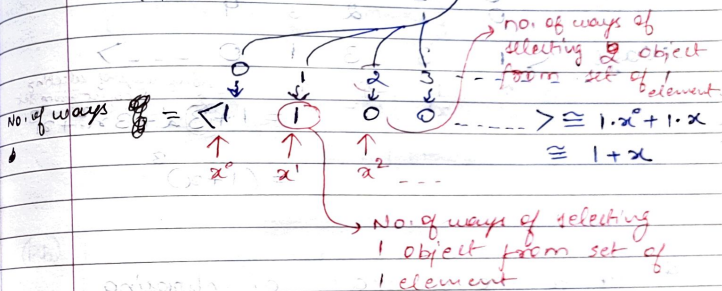 no. of ways of
selecting 2 object
from set of 1
element
0 1 2 3 - - -
No. of ways = < 1 1 0 0 ------ > ≅ 1·x⁰ + 1·x
≅ 1 + x
x⁰ x¹ x² - - -
No. of ways of selecting
1 object from set of
1 element